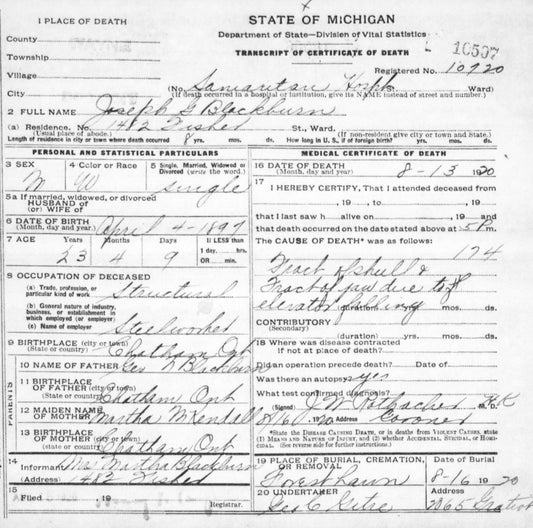 1 PLACE OF DEATH
STATE OF MICHIGAN
County
Department of State—Division of Vital Statistics
Township
TRANSCRIPT OF CERTIFICATE OF DEATH
10507
Village
Registered No. 10920
City
(No. Samaritan Hosp. Ward)
(If death occurred in a hospital or institution, give its NAME instead of street and number.)
2 FULL NAME Joseph G Blackburn
(a) Residence. No. 1482 Fisher St., Ward.
(Usual place of abode.) (If non-resident give city or town and State.)
Length of residence in city or town where death occurred 8 yrs. mos. ds. How long in U. S., if of foreign birth? yrs. mos. ds.
PERSONAL AND STATISTICAL PARTICULARS
3 SEX
M
4 Color or Race
W
5 Single, Married, Widowed or Divorced (write the word.)
single
5a If married, widowed, or divorced
HUSBAND of
(or) WIFE of
6 DATE OF BIRTH
(Month, day and year) April 4-1897
7 AGE Years Months Days If LESS than
1 day, hrs.
OR min.
23 4 9
8 OCCUPATION OF DECEASED
(a) Trade, profession, or
particular kind of work Structural
(b) General nature of industry,
business, or establishment in
which employed (or employer)
(c) Name of employer Steelworker
9 BIRTHPLACE (city or town)
(State or country) Chatham Ont
PARENTS
10 NAME OF FATHER Geo N Blackburn
11 BIRTHPLACE OF
FATHER (city or town)
(State or country) Chatham Ont
12 MAIDEN NAME
OF MOTHER Martha McKendall
13 BIRTHPLACE
OF MOTHER (city or town)
(State or country) Chatham Ont
14 Informant Mrs Martha Blackburn
Address 482 Fisher
15
FILED , 19
Registrar.
MEDICAL CERTIFICATE OF DEATH
16 DATE OF DEATH
(Month, day and year) 8-13 1920
17
I HEREBY CERTIFY, That I attended deceased
from
, 19 , to , 19 ,
that I last saw h alive on , 19 ,
and that death occurred on the date stated above at 5 P m.
The CAUSE OF DEATH* was as follows:
174
Fract of skull &
Fract of jaw due to
elevator falling
(duration) yrs. mos. ds.
CONTRIBUTORY
(Secondary)
(duration) yrs. mos. ds.
18 Where was disease contracted
if not at place of death?
Did an operation precede death? Date of
Was there an autopsy? yes
What test confirmed diagnosis?
(Signed) J W Rothacher
8/16, 1920 Coroner
*State the DISEASE CAUSING DEATH, or in deaths from VIOLENT CAUSES, state
(1) MEANS AND NATURE OF INJURY, and (2) whether ACCIDENTAL, SUICIDAL, or HOMICIDAL. (See reverse side for further instructions.)
19 PLACE OF BURIAL, CREMATION,
OR REMOVAL
Forest Lawn
Date of Burial
8-16 1920
20 UNDERTAKER
Geo C Getre
Address
2065 Gratiot